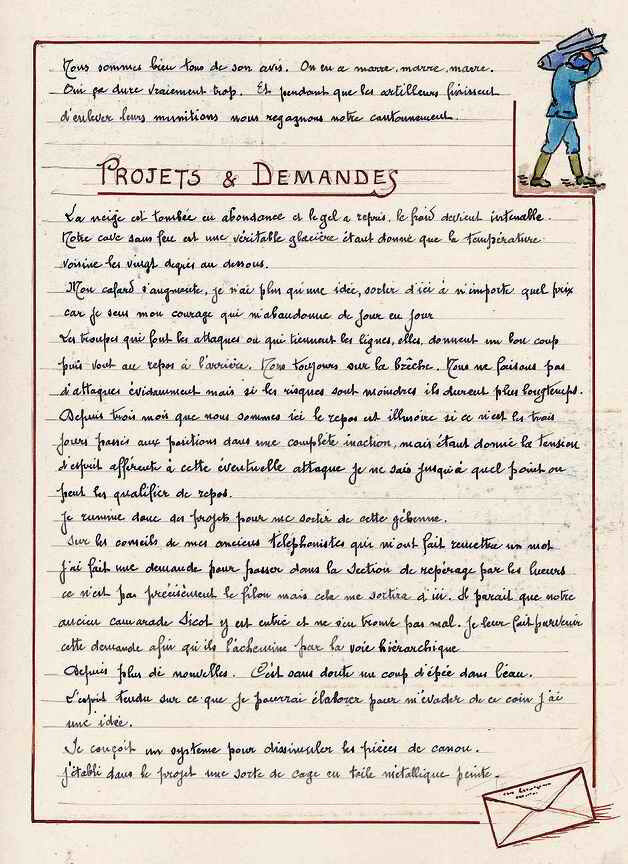 Nous sommes bien tous de son avis. On en a marre, marre, marre.
Oui ça dure vraiement trop. Et pendant que les artilleurs finissent
d'enlever leurs munitions nous regagnons notre cantonnement.
PROJETS & DEMANDES
La neige est tombée en abondance et le gel a repris, le froid devient intenable.
Notre cave sans feu est une véritable glacière étant donné que la température
voisine les vingt degrés au dessous.
Mon cafard s'augmente, je n'ai plus qu'une idée, sortir d'ici à n'importe quel prix
car je sens mon courage qui m'abandonne de jour en jour
Les troupes qui font les attaques ou qui tiennent les lignes, elles, donnent un bon coup
puis vont au repos à l'arrière. Nous toujours sur la brèche. Nous ne faisons pas
d'attaques évidamment mais si les risques sont moindres ils durent plus longtemps.
Depuis trois mois que nous sommes ici le repos est illusoire si ce n'est les trois
jours passés aux positions dans une complète inaction, mais étant donné la tension
d'esprit afférente à cette éventuelle attaque je ne sais jusqu'à quel point on
peut les qualifier de repos.
Je rumine donc des projets pour me sortir de cette géhenne.
Sur les conseils de mes anciens téléphonistes qui m'ont fait remettre un mot
j'ai fait une demande pour passer dans la section de repérage par les lueurs
ce n'est pas précisément le filon mais cela me sortira d'ici. Il parait que notre
ancien camarade Sicot y est entré et ne s'en trouve pas mal. Je leur fait parvenir
cette demande afin qu'ils l'achemine par la voie hiérarchique
Depuis plus de nouvelles. C'est sans doute un coup d'épée dans l'eau.
L'esprit tendu sur ce que je pourrai élaborer pour m'évader de ce coin j'ai
une idée.
Je conçoit un système pour dissimuler les pièces de canon.
J'établi dans le projet une sorte de cage en toile métallique peinte.